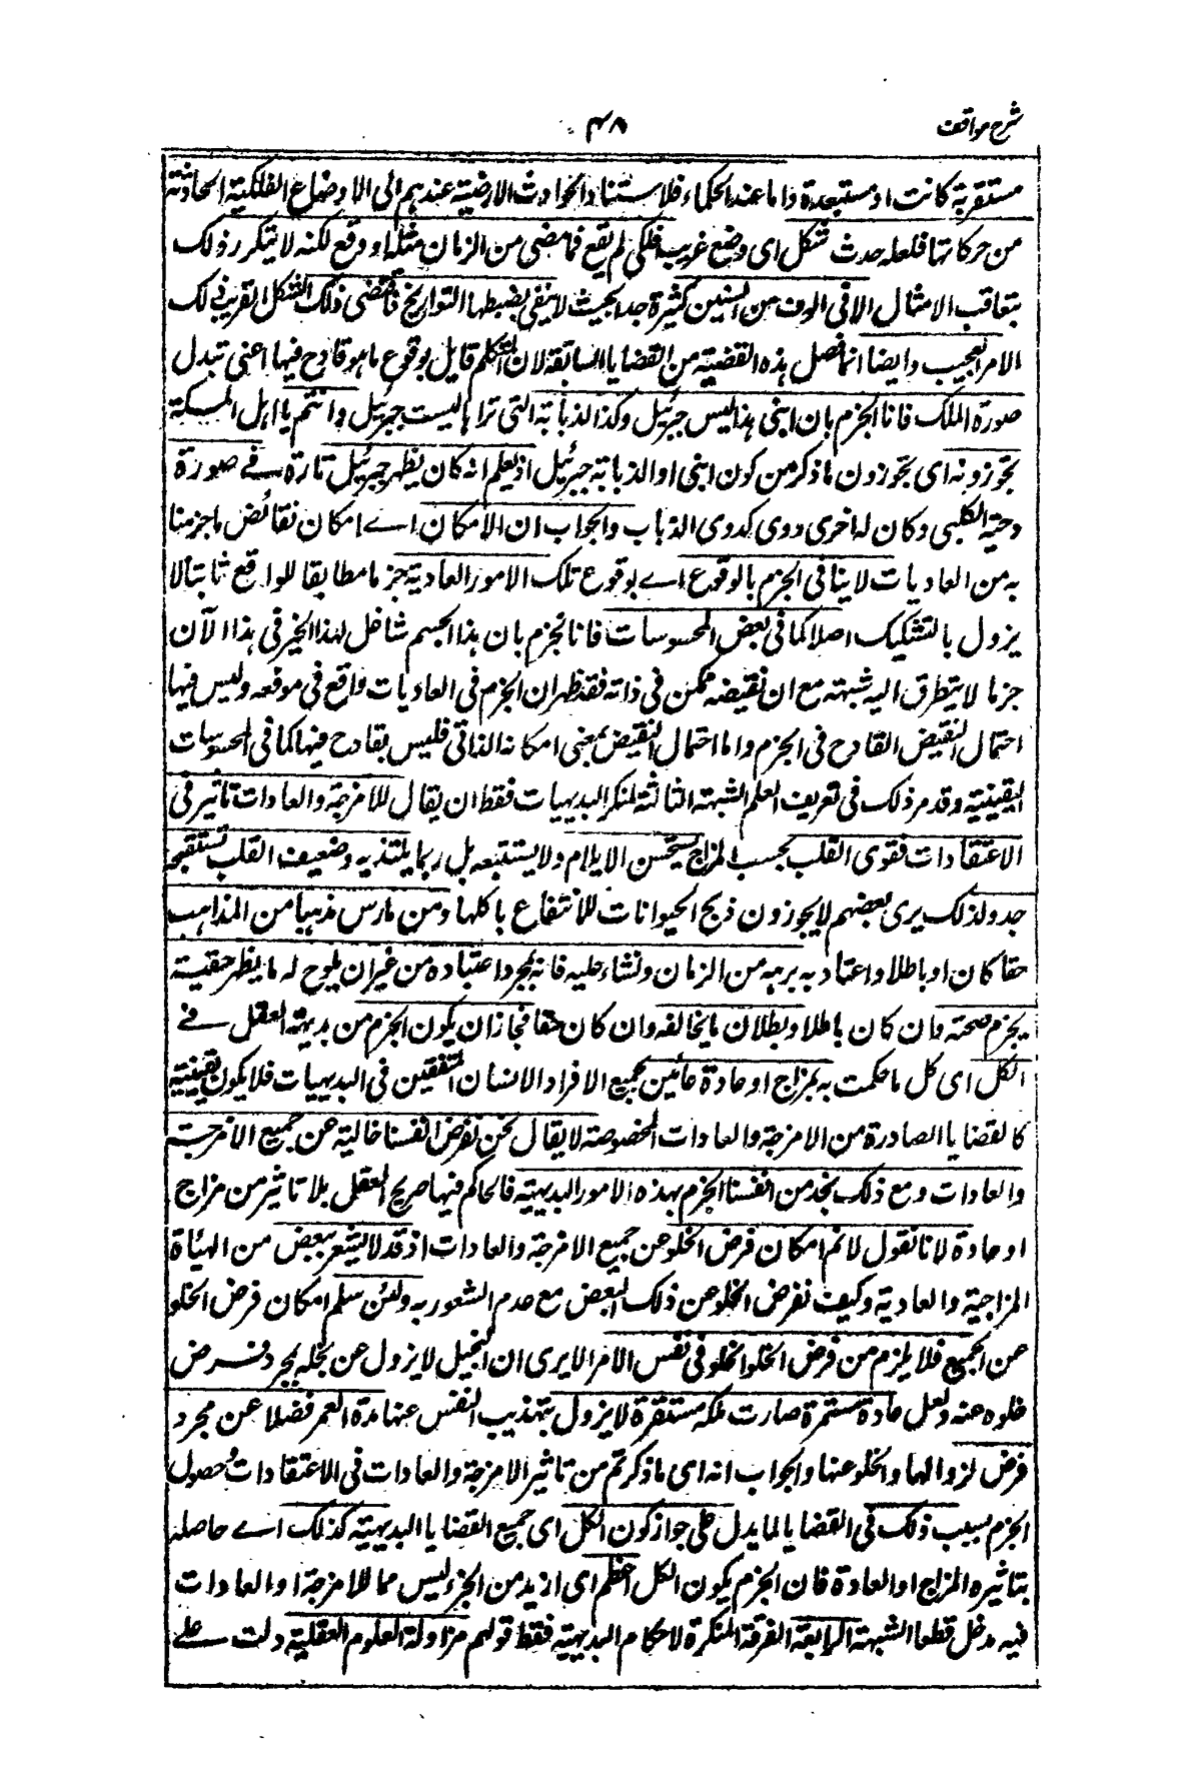 شرح مواقف
۴۸
مستقربة كانت او مستبعدة واما عند الحكماء فلاستناد الحوادث الارضية عندهم الى الاوضاع الفلكية الحادثة
من حركاتها فلعله حدث شكل اى وضع غريب فلكى لم يقع فما مضى من الزمان مثله او وقع لكنه لا يتكرر ذلك
بتعاقب الامثال الا فى الوف من السنين كثيرة جدا بحيث لا يفى بضبطها التواريخ فاقتضى ذلك الشكل الغريب ذلك
الامر العجيب وايضا انما فصل هذه القضية من القضايا السابقة لان المتكلم قايل بوقوع ما هو قادح فيها اعنى تبدل
صورة الملك فانا الجزم بان ابنى هذا ليس جبرئيل وكذا الذبابة التى تراها ليست جبرئيل وانتم يا اهل الملة
تجوزونه اى تجوزون ما ذكر من كون ابنى او الذبابة جبرئيل اذ يعلم انه كان يظهر جبرئيل تارة فے صورة
دحية الكلبى وكان له اخرى دوى كدوى الذباب والجواب ان الامكان اے امكان نقائض ما جزمنا
به من العاديات لا ينافى الجزم بالوقوع اے بوقوع تلك الامور العادية جزما مطابقا للواقع ثابتا لا
يزول بالتشكيك اصلا كما فى بعض المحسوسات فانا نجزم بان هذا الجسم شاغل لهذا الحيز فى هذا الآن
جزما لا يتطرق اليه شبهته مع ان نقيضه ممكن فى ذاته فقد ظهر ان الجزم فى العاديات واقع فى موقعه وليس فيها
احتمال النقيض القادح فى الجزم واما احتمال النقيض بمعنى امكانه الذاتى فليس بقادح فيها كما فى المحسوسات
اليقينية وقد مر ذلك فى تعريف العلم الشبهة الثالثة لمنكر البديهيات فقط ان يقال للامزجة والعادات تاثير فى
الاعتقادات فقوى القلب بحسب المزاج يستحسن الايلام ولا يستقبحه بل ربما يلتذ به وضعيف القلب يستقبحه
جدا ولذلك يرى بعضهم لا يجوزون ذبح الحيوانات للانتفاع باكلها ومن مارس مذهبا من المذاهب
حقا كان او باطلا واعتاد به برهة من الزمان ونشاء عليه فانه بمجرد اعتياده من غير ان يلوح له ما يظهر حقيته
يجزم صحته وان كان باطلا وبطلان ما يخالفه وان كان حقا فجاز ان يكون الجزم من بديهة العقل فے
الكل اى كل ما حكمت به لمزاج او عادة عامين لجميع الافراد الانسان المتفقين فى البديهيات فلا يكون يقينية
كالقضايا الصادرة من الامزجة والعادات المخصوصة لا يقال نحن نفرض انفسنا خالية عن جميع الامزجة
والعادات ومع ذلك نجد من انفسنا الجزم بهذه الامور البديهية فالحاكم فيها صريح العقل بلا تاثير من مزاج
او عادة لانا نقول لا نم امكان فرض الخلو عن جميع الامزجة والعادات اذ قد لا يشعر ببعض من الهيأة
المزاجية والعادية وكيف نفرض الخلو عن ذلك البعض مع عدم الشعور به ولئن سلم امكان فرض الخلو
عن الجميع فلا يلزم من فرض الخلو الخلو فى نفس الامر الا يرى ان البخيل لا يزول عن بخله بمجرد فرض
خلوه عنه ولعل عادة مستمرة صارت ملكة مستقرة لا يزول بتهذيب النفس عنها مدة العمر فضلا عن مجرد
فرض لزوالها والخلو عنها والجواب انه اى ما ذكرتم من تاثير الامزجة والعادات فى الاعتقادات وحصول
الجزم بسبب ذلك فى القضايا لما يدل على جواز كون الكل اى جميع القضايا البديهية كذلك اے حاصلة
بتاثيره المزاج او العادة فان الجزم يكون الكل اعظم اى ازيد من الجزء ليس مما للامزجة او العادات
فيه مدخل قطعا الشبهة الرابعة الفرقة المنكرة لاحكام البديهية فقط قولهم مزاولة العلوم العقلية دلت علے